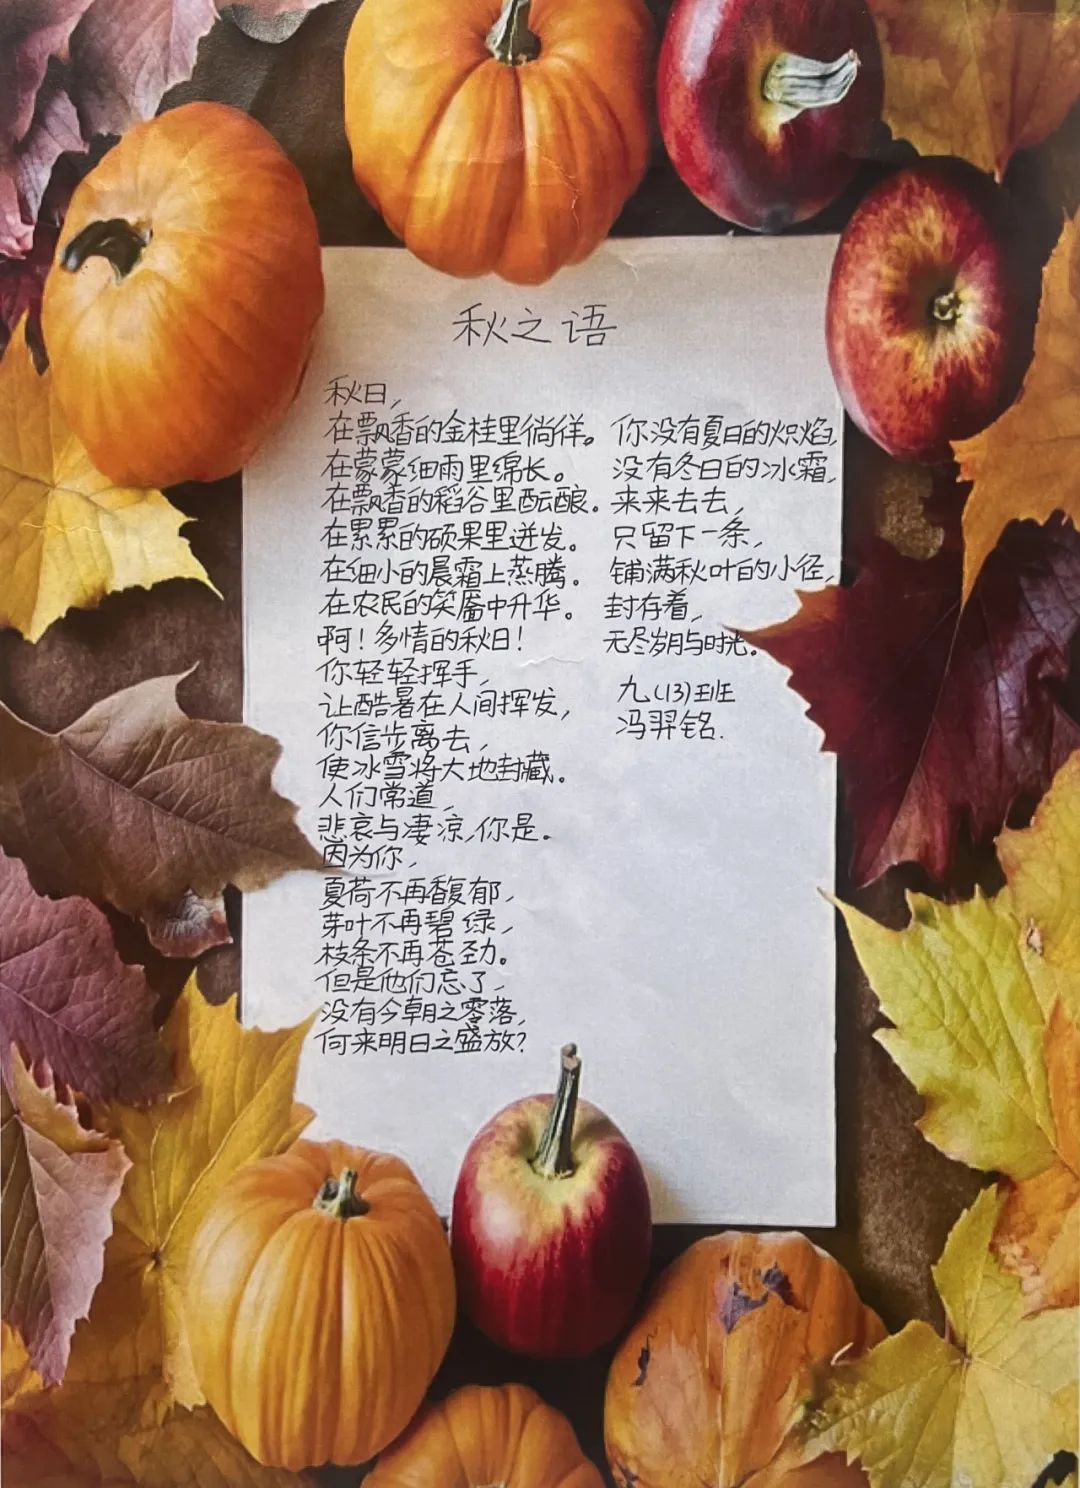 秋之语
秋日,
在飘香的金桂里徜徉。
在蒙蒙细雨里绵长。
在飘香的稻谷里酝酿。
在累累的硕果里迸发。
在细小的晨霜上蒸腾。
在农民的笑靥中升华。
啊!多情的秋日!
你轻轻挥手,
让酷暑在人间挥发,
你信步离去,
使冰雪将大地封藏。
人们常道,
悲哀与凄凉,你是。
因为你,
夏荷不再馥郁,
芽叶不再碧绿,
枝条不再苍劲。
但是他们忘了,
没有今朝之零落,
何来明日之盛放?
你没有夏日的炽焰,
没有冬日的冰霜,
来来去去,
只留下一条,
铺满秋叶的小径,
封存着,
无尽岁月与时光。
九(13)班
冯羿铭.